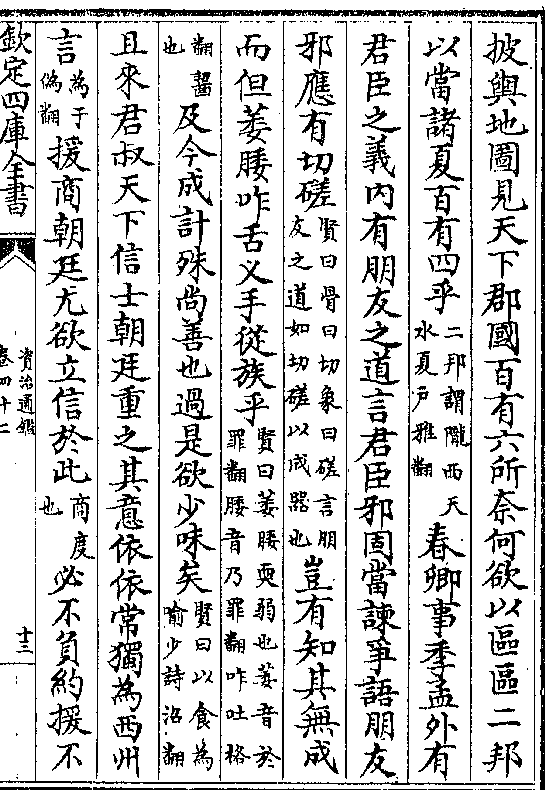 披輿地圖見天下郡國百有六所奈何欲以區區二邦
以當諸夏百有四乎二邦謂隴西天水夏户雅翻春卿事季孟外有
君臣之義内有朋友之道言君臣邪固當諫爭語朋友
邪應有切磋賢曰骨曰切象曰磋言朋友之道如切磋以成器也豈有知其無成
而但萎腇咋舌乂手從族乎賢曰萎腇耎弱也萎音於罪翻腇音乃罪翻咋吐格
翻齧也及今成計殊尚善也過是欲少味矣賢曰以食為喻少詩沼翻
且來君叔天下信士朝廷重之其意依依常獨為西州
言為于偽翻援商朝廷尤欲立信於此商度也必不負約援不
欽定四庫全書
資治通鑑
卷四十二
十三